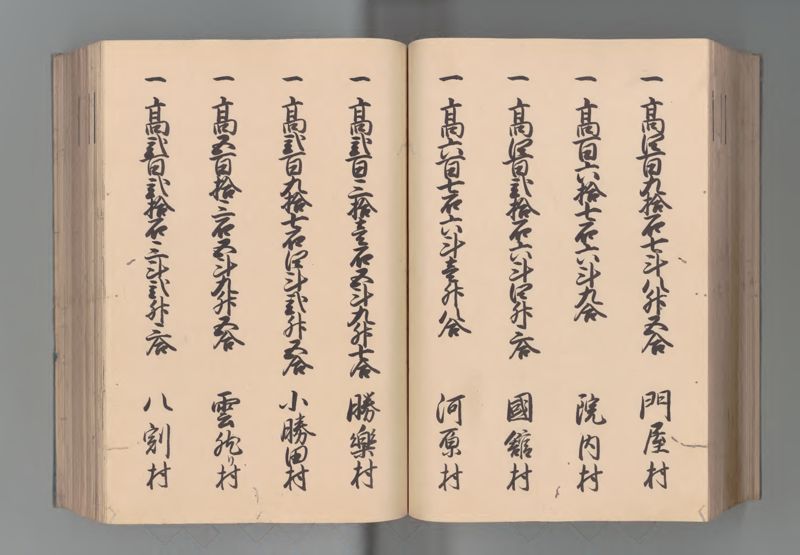 一 高四百九拾石七斗八升五合 門屋村
一 高百六拾七石六斗九合 院内村
一 高四百弐拾石六斗四升三合 國舘村
一 高六百七石六斗壱升八合 河原村
一 高弐百三拾壱石五斗九升七合 勝樂村
一 高弐百九拾七石四斗弐升五合 小勝田村
一 高五百拾三石五斗九升五合 雲然村
一 高弐百弐拾石三斗弐升三合 八割村